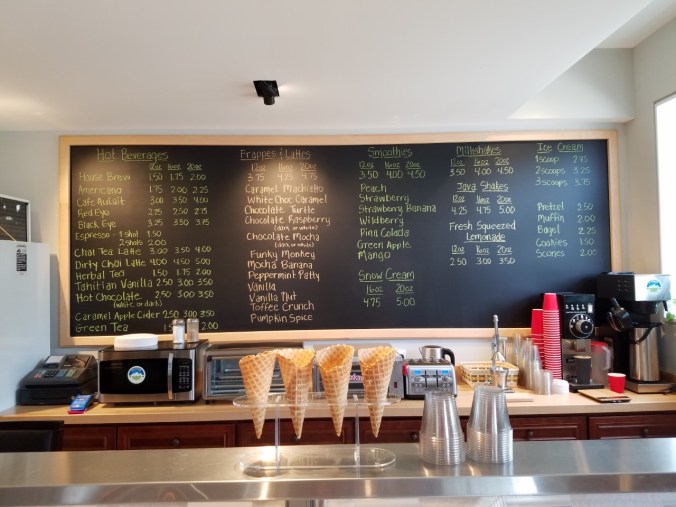 Hot Beverages
12oz 16oz 20oz
House Brew 1.50 1.75 2.00
Americano 1.75 2.00 2.25
Cafe AuLait 3.00 3.50 4.00
Red Eye 2.25 2.50 2.75
Black Eye 3.25 3.50 3.75
Espresso - 1 shot 1.50
2 shots 2.00
Chai Tea Latte 3.00 3.50 4.00
Dirty Chai Latte 4.00 4.50 5.00
Herbal Tea 1.50 1.75 2.00
Tahitian Vanilla 2.50 3.00 3.50
Hot Chocolate 2.50 3.00 3.50
(white or dark)
Caramel Apple Cider 2.50 3.00 3.50
Green Tea 2.00
Frappes & Lattes
12oz 16oz 20oz
3.75 4.25 4.75
Caramel Machiatto
White Choc Caramel
Chocolate Turtle
Chocolate Raspberry
(dark or white)
Chocolate Mocha
(dark or white)
Funky Monkey
Mocha Banana
Peppermint Patty
Vanilla
Vanilla Nut
Toffee Crunch
Pumpkin Spice
Smoothies
12oz 16oz 20oz
3.50 4.00 4.75
Peach
Strawberry
Strawberry Banana
Wildberry
Pina Colada
Green Apple
Mango
Snow Cream
16oz 20oz
4.75 5.00
Milkshakes
12oz 16oz 20oz
3.50 4.00 4.50
Java Shakes
12oz 16oz 20oz
4.25 4.75 5.00
Fresh Squeezed
Lemonade
12oz 16oz 20oz
2.50 3.00 3.50
Ice Cream
1 scoop 2.25
2 scoops 3.25
3 scoops 3.75
Pretzel 2.50
Muffin 2.00
Bagel 2.25
Cookies 1.50
Scones 2.00